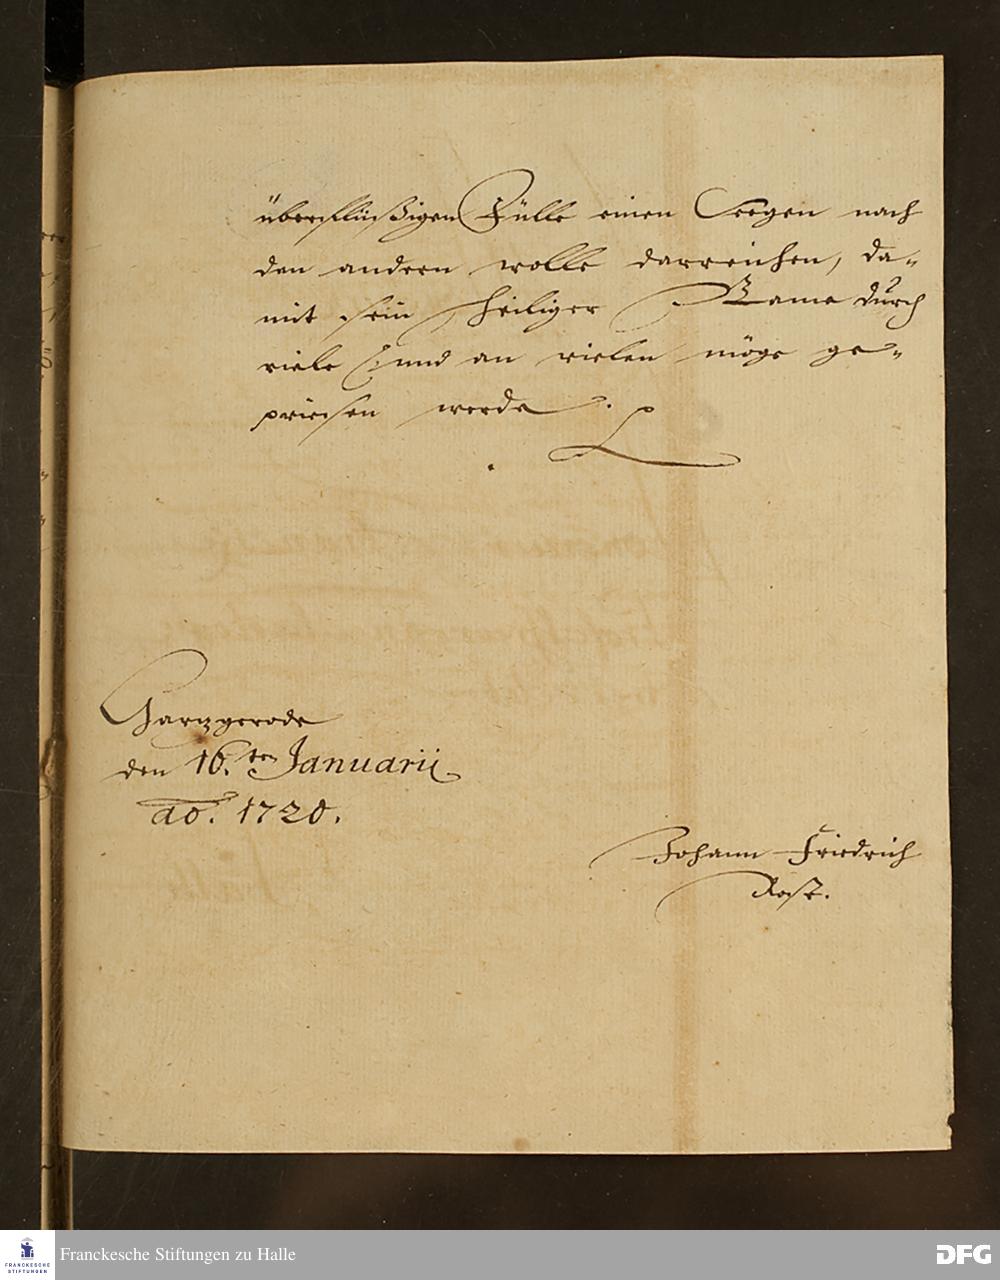 überflüßigen Fülle einen Seegen nach
den andern wolle darreichen, da-
mit sein heiliger Name durch
viele und an vielen möge ge-
priesen werde.
Harzgerode
den 16.ten Januarii
ao. 1720.
Johann Friedrich
Rost.
Franckesche Stiftungen zu Halle
FRANCKESCHE
STIFTUNGEN
DFG